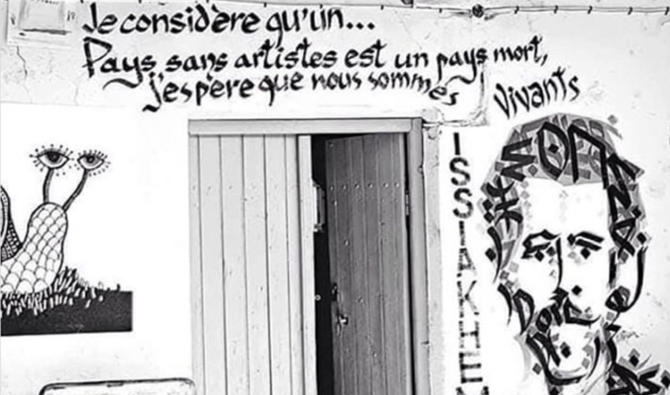 Je considère qu'un...
Pays sans artistes est un pays mort,
j'espère que nous sommes vivants
ISSIAKHEM